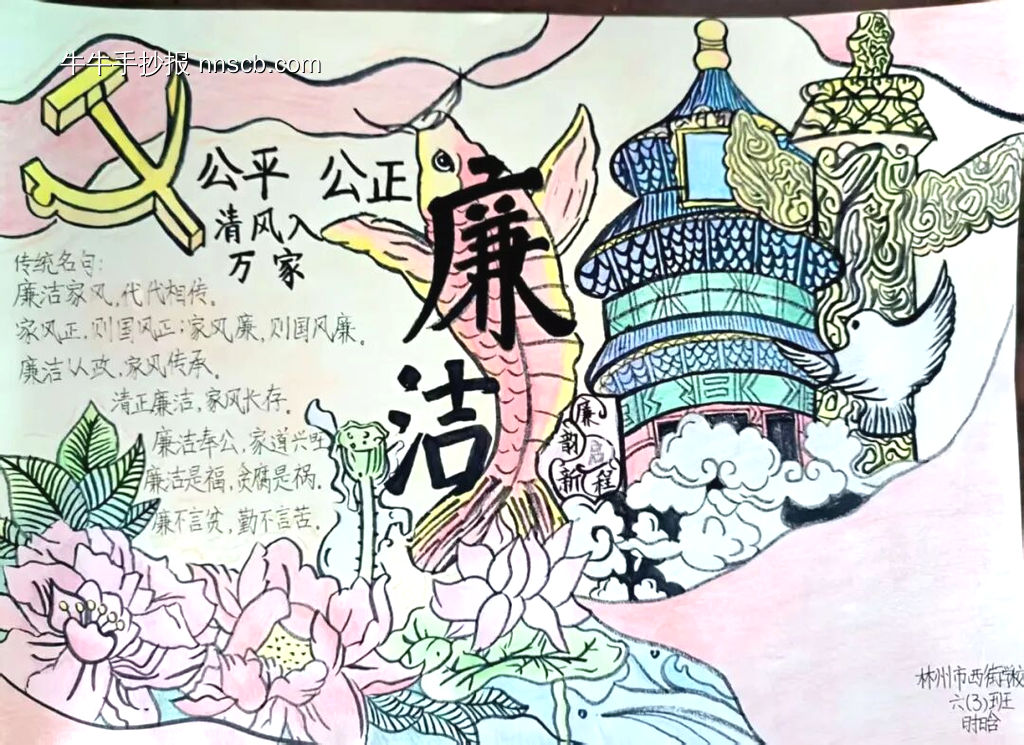 牛牛手抄报 nnscb.com
公平 公正
清风入
万家
廉
洁
传统名句:
廉洁家风,代代相传。
家风正,则国风正;家风廉,则国风廉。
廉洁从政,家风传承。
清正廉洁,家风长存。
廉洁奉公,家道兴旺
廉洁是福,贪腐是祸。
廉不言贫,勤不言苦。
廉
韵
新程
林州市西街学校
六(3)班